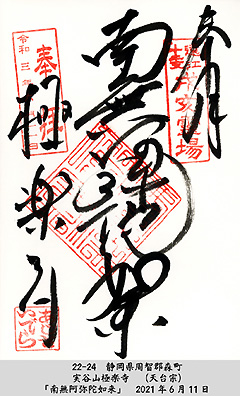 奉拝
南無阿弥陀如来
極楽寺
奉拝
令和三年
あじさいでら
22-24　静岡県周智郡森町
実谷山極楽寺　（天台宗）
「南無阿弥陀如来」　2021年6月11日